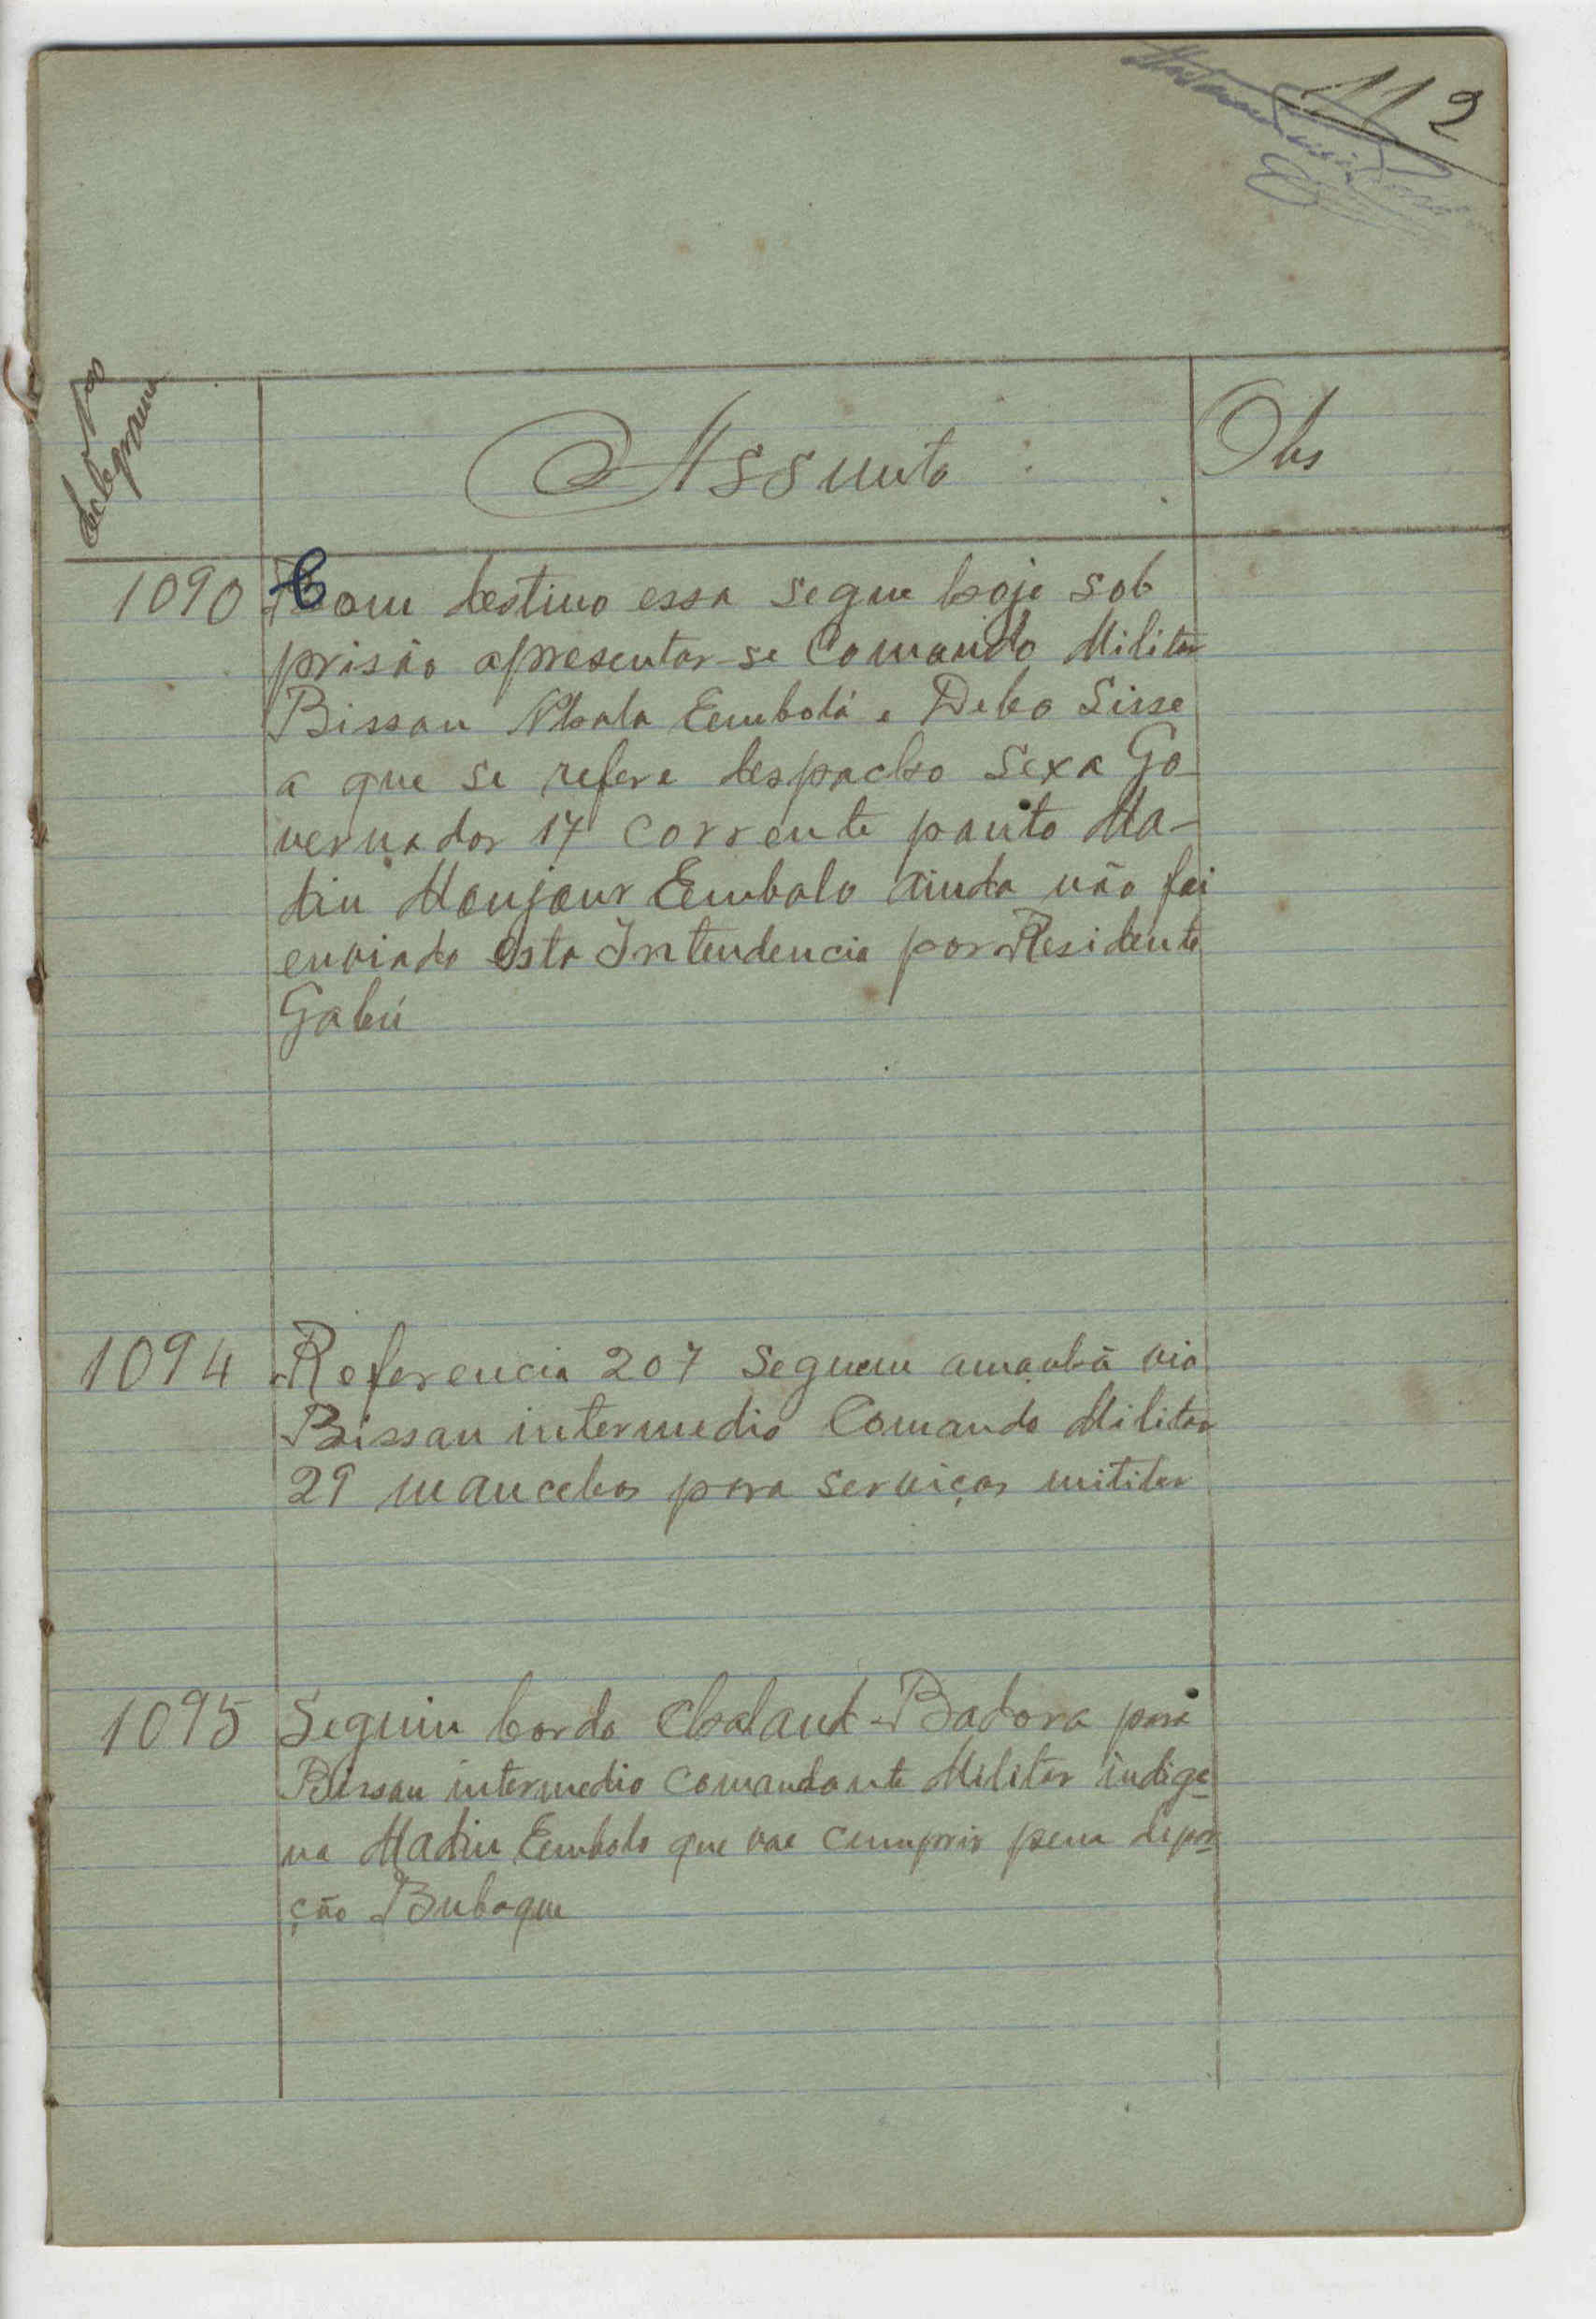 112
telegrama
Assunto
Obs
1090 Com destino essa segue hoje sob
prisão apresentar-se Comando Militar
Bissau Emboló e Debo Sisse
a que se refere despacho Sexa Go-
vernador 17 corrente ponto Ma-
diu Monjour Embalo ainda não foi
enviado esta Intendencia por Residente
Gabú
1094 Referencia 207 seguem amanhã via
Bissau intermedio Comando Militar
29 mancebos para serviços militar
1095 Seguiu bordo Chaland-Badora para
Bissau intermedio Comandante Militar indige-
na Madiu Embalo que vae cumprir pena depor
ção Bubaque